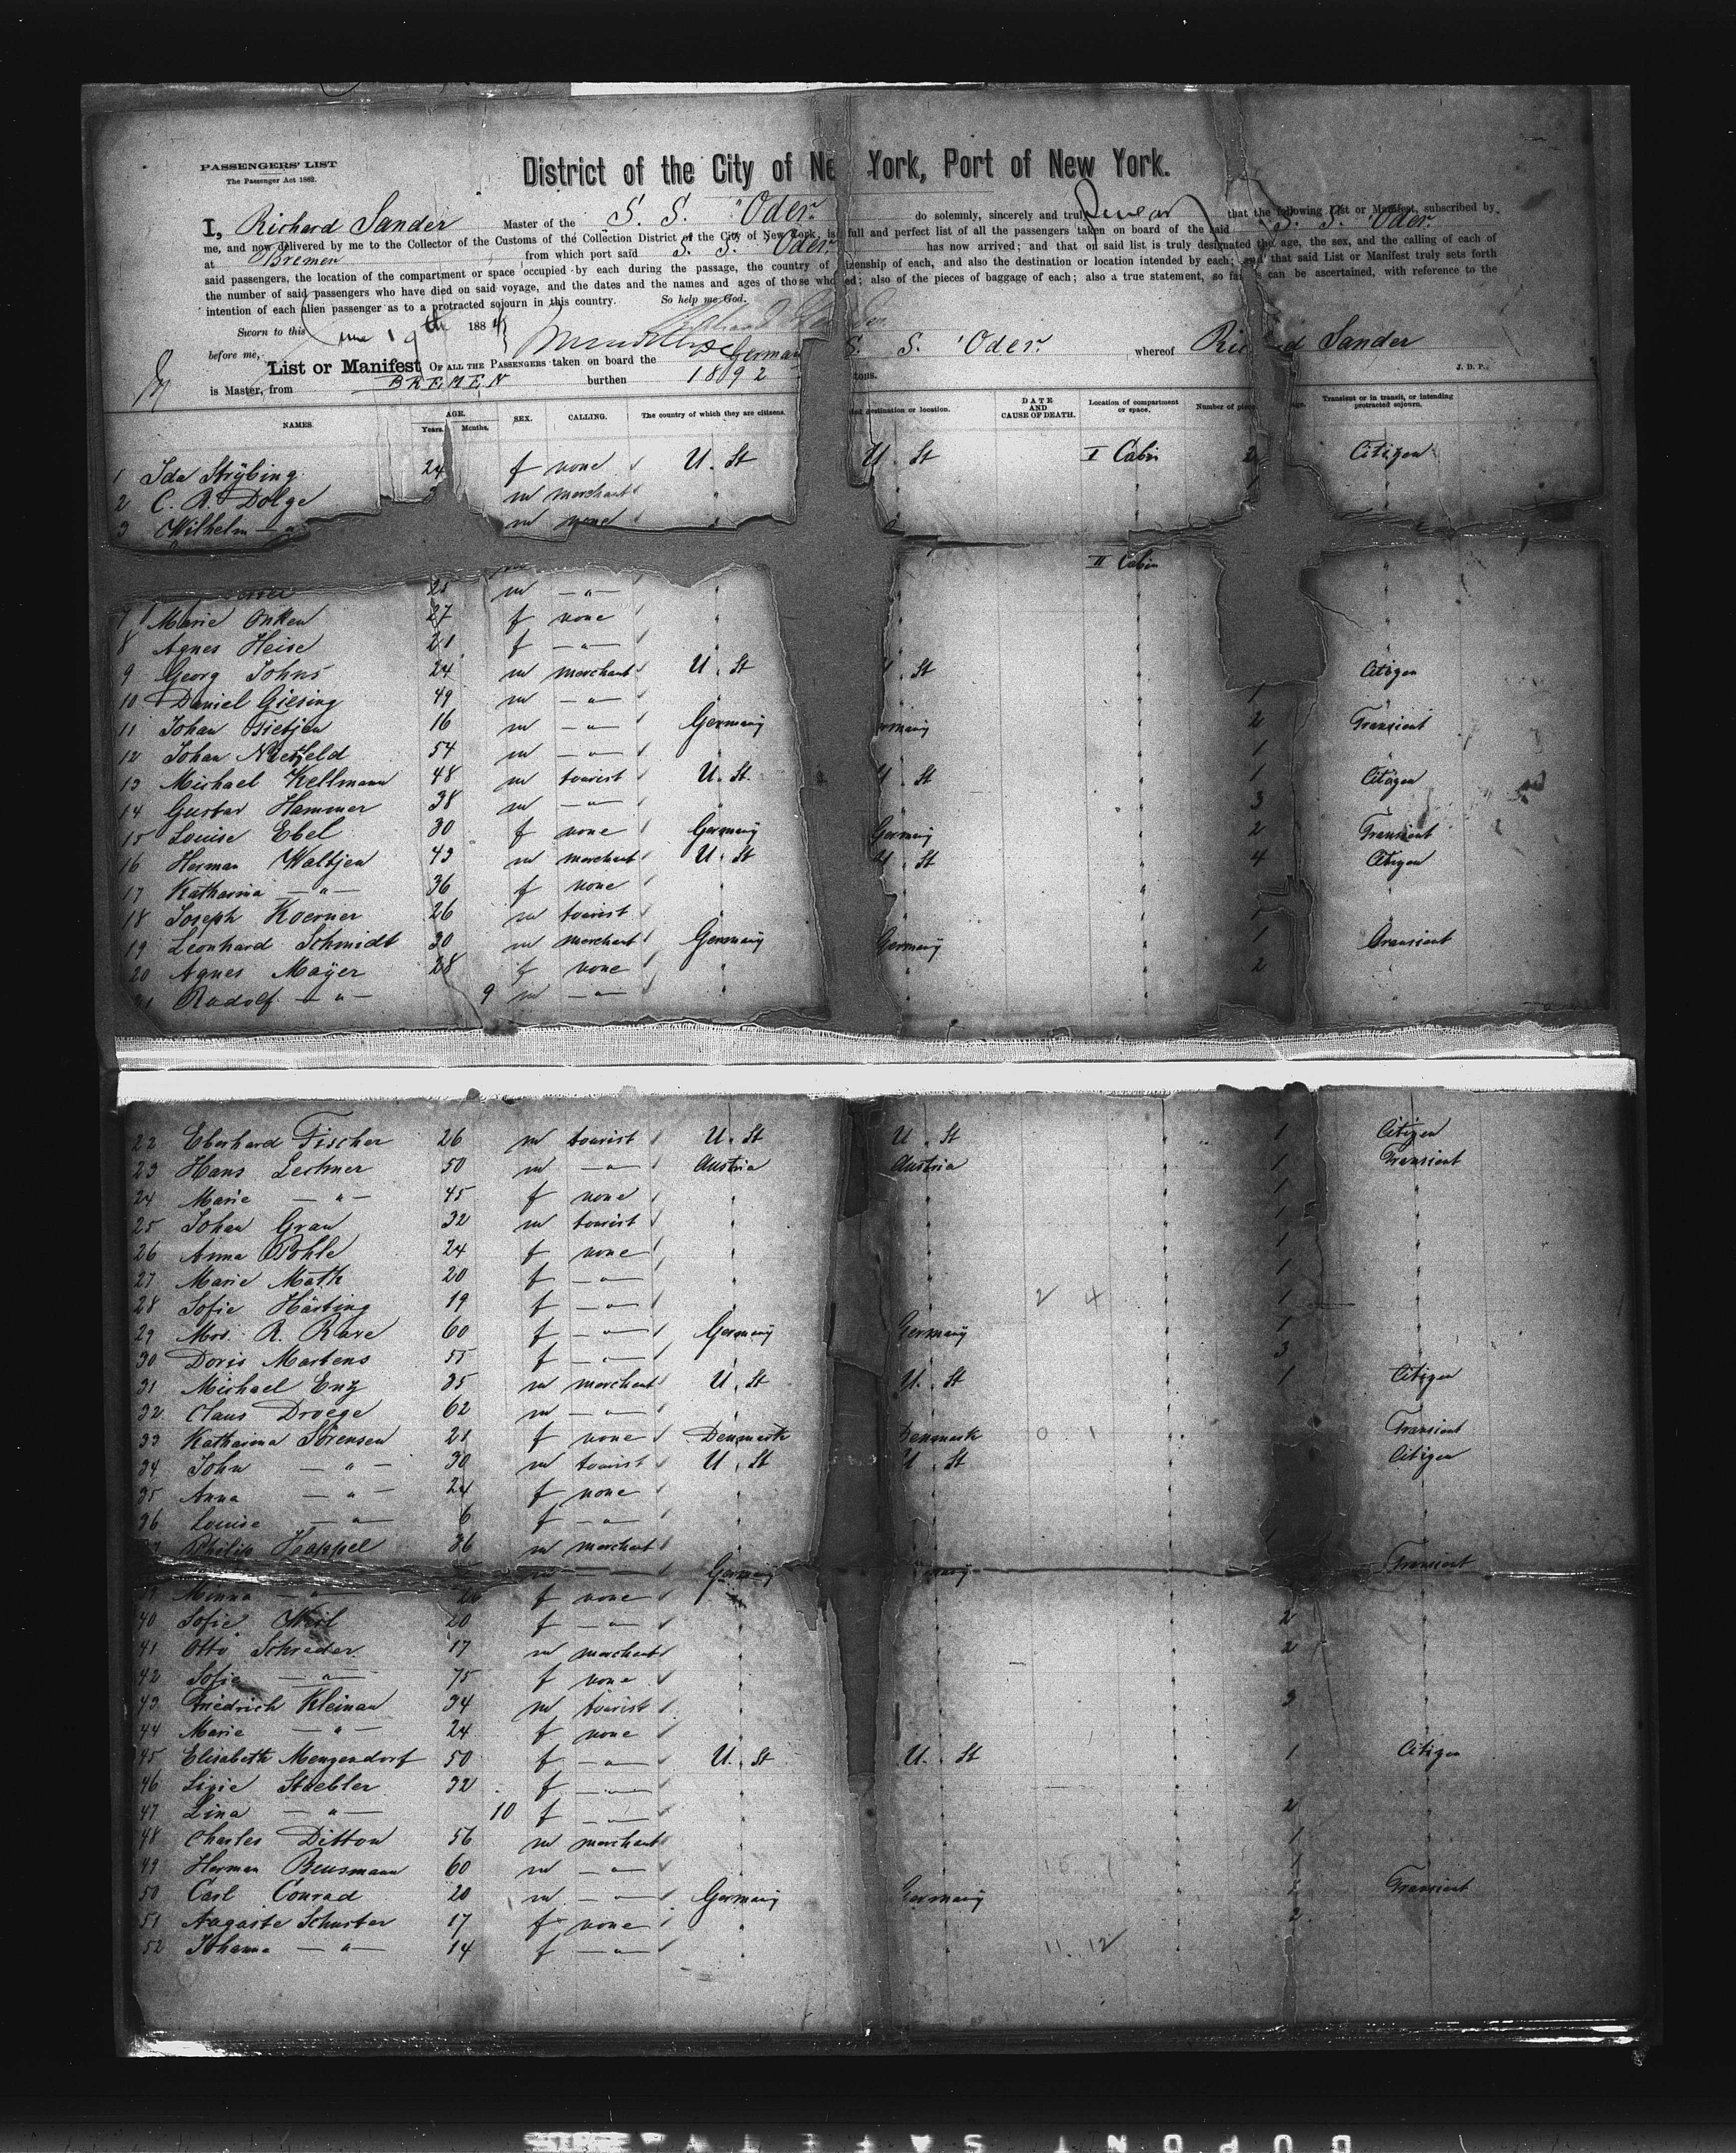 PASSENGERS' LIST
The Passenger Act 1882.
District of the City of New York, Port of New York.
I, Richard Sander Master of the S. S. "Oder" do solemnly, sincerely and truly swear that the following List or Manifest, subscribed by
me, and now delivered by me to the Collector of the Customs of the Collection District of the City of New York, is full and perfect list of all the passengers taken on board of the said S. S. Oder.
at Bremen from which port said S. S. "Oder" has now arrived; and that on said list is truly designated the age, the sex, and the calling of each of
said passengers, the location of the compartment or space occupied by each during the passage, the country of izenship of each, and also the destination or location intended by each; and that said List or Manifest truly sets forth
the number of said passengers who have died on said voyage, and the dates and the names and ages of those who ed; also of the pieces of baggage of each; also a true statement, so far as can be ascertained, with reference to the
intention of each alien passenger as to a protracted sojourn in this country. So help me God.
Sworn to this June 19th 188
before me,
List or Manifest OF ALL THE PASSENGERS taken on board the German S. S. "Oder" whereof Richard Sander
is Master, from BREMEN burthen 1892 tons.
J. D. P.
NAMES. AGE. Years. Months. SEX. CALLING. The country of which they are citizens. destination or location. DATE AND CAUSE OF DEATH. Location of compartment or space. Number of pieces Transient or in transit, or intending protracted sojourn.
1 Ida Strÿbing 24 f none U. St U. St I Cabin 2 Citizen
2 C. R. Dolge 3 m merchant " " 1 "
3 Wilhelm — " m none "
II Cabin
25 m — " —
7 Marie Onken 27 f none "
8 Agnes Heise 21 f — " — "
9 Georg Johns 24 m merchant U. St U. St Citizen
10 Daniel Giesing 49 m — " — " 1 "
11 Johan Tietjen 16 m — " — Germany rmany 2 Transient
12 Johan Nietfeld 54 m — " — " 1 "
13 Michael Kellmann 48 m tourist U. St U. St 1 Citizen
14 Gustav Hammer 38 m — " — " 3 "
15 Louise Ebel 30 f none Germany Germany 2 Transient
16 Herman Waltjen 43 m merchant U. St U. St 4 Citizen
17 Katharina — " — 36 f none " "
18 Joseph Koerner 26 m tourist " "
19 Leonhard Schmidt 30 m merchant Germany Germany 1 Transient
20 Agnes Mayer 28 f none " " 2 "
21 Rudolf — " — 9 m — " — " "
22 Eberhard Fischer 26 m tourist U. St U. St 1 Citizen
23 Hans Lechner 50 m — " — Austria Austria 1 Transient
24 Marie — " — 45 f none " " 1 "
25 Johan Grau 32 m tourist " " 1 "
26 Anna Pohle 24 f none " " 1 "
27 Marie Math 20 f — " — " " 1 "
28 Sofie Härting 19 f — " — " " 2 4 1 "
29 Mrs. R. Rave 60 f — " — Germany Germany 1 "
30 Doris Martens 55 f — " — " " 3 "
31 Michael Enz 35 m merchant U. St U. St 1 Citizen
32 Claus Droege 62 m — " — " " "
33 Katharina Sörensen 21 f none Denmark Denmark 0 1 Transient
34 John — " — 30 m tourist U. St U. St Citizen
35 Anna — " — 24 f none " " "
36 Louise — " — 6 f — " — " " "
Philip Happel 36 m merchant " " "
m — " — Germany many Transient
Minna — " — 26 f none " " "
40 Sofie Weil 20 f — " — " " 2 "
41 Otto Schrader 17 m merchant " " 2 "
42 Sofie — " — 75 f none " " "
43 Friedrich Kleinau 34 m tourist " " 3 "
44 Marie — " — 24 f none " " "
45 Elisabeth Mengendorf 50 f — " — U. St U. St 1 Citizen
46 Lizie Staebler 32 f — " — " " "
47 Lina — " — 10 f — " — " " 2 "
48 Charles Ditton 56 m merchant " " 1 "
49 Herman Beusmann 60 m — " — " " 1 "
50 Carl Conrad 20 m — " — Germany Germany Transient
51 Auguste Schuster 17 f none " " 2 "
52 Johanna — " — 14 f — " — " " 11. 12 "
DUPONT SAFETY